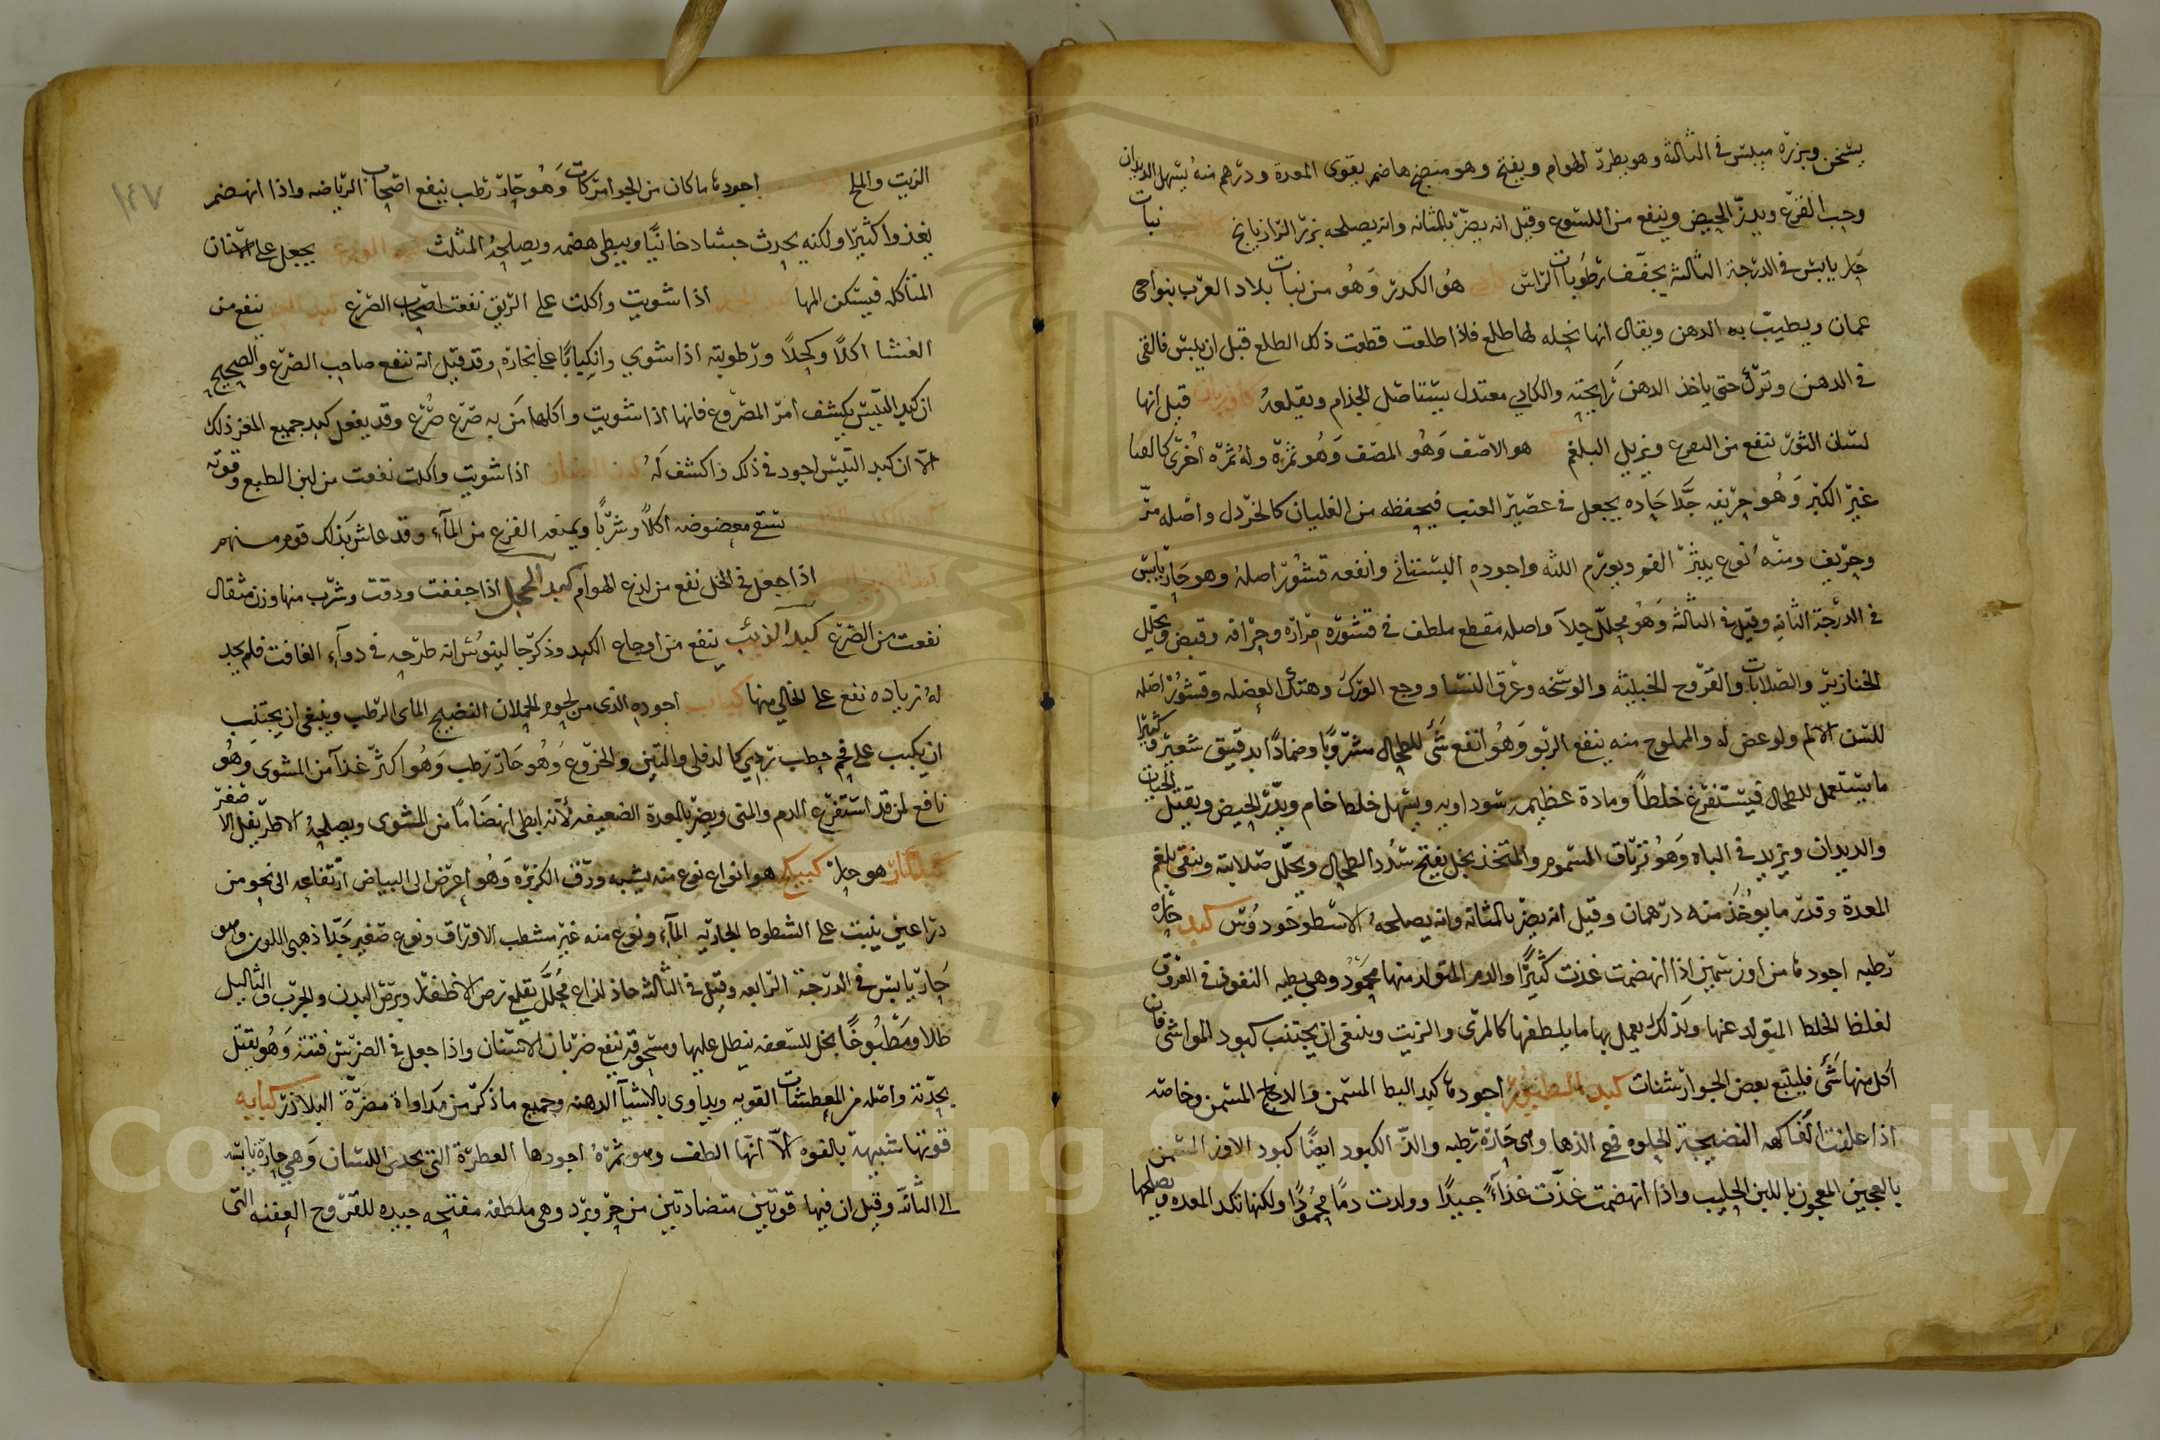 يسخن وبزره ميبس في الثالثه وهو يطرد الهوام ويفتح وهو منضج هاضم يقوى المعدة ودرهم منه يسهل الديدان
وحب القرع ويدر الحيض وينفع من اللسوع وقيل انه يضر بالمثانه وانه يصلحه بزر الرازيانج نبات
حار يابس في الدرجة الثالثه يجفف رطوبات الراس هو الكدر وهو من نبات بلاد العرب بنواحى
عمان ويطيب به الدهن ويقال انها نخله لها طلع فاذا طلعت قطعت ذلك الطلع قبل ان ييبس فالقى
في الدهن وترك حتى ياخذ الدهن رايحته والكادى معتدل يستاصل الجذام ويقلعه قيل انها
لسان الثور تنفع من الصرع ويزيل البلغم هو الاصف وهو المصف وهو ثمرة وله ثمره اخرى كالقثا
غير الكبر وهو حريفه جدا حاده يجعل في عصير العنب فيحفظه من الغليان كالخردل واصله مر
وحريف ومنه نوع يبثر الفم ويورم اللثه واجوده البستانى وانفعه قشور اصله وهو حار يابس
في الدرجة الثانيه وقيل في الثالثه وهو محلل جلا واصله مقطع ملطف في قشوره مراره وحرافه وقبض ويحلل
الخنازير والصلابات والقروح الخبيثه والوسخه وعرق النسا ووجع الورك وهتك العضله وقشور اصله
للسن الالم ولو عض له والمملوح منه ينفع الربو وهو انفع شى للطحال مشروبا وضمادا بدقيق شعير وكثيرا
ما يستعمل للطحال فيستفرغ خلطا ومادة عظيمه سوداويه ويسهل خلط خام ويدر الحيض ويقتل الحيات
والديدان ويزيد في الباه وهو ترياق السموم والمتخذ بخل يفتح سدد الطحال ويحلل صلابته وينقى بلغم
المعدة وقدر ما يوخذ منه درهمان وقيل انه يضر بالمثانه وانه يصلحه الاسطوخودوس كبد حاره
رطبه اجودها من اوز سمين اذا انهضمت غذت كثيرا والدم المتولد منها محمود وهى بطيه النفوذ في العروق
لغلظ الخلط المتولد عنها ولذلك يعمل بها ما يلطفها كالمرى والزيت وينبغى ان يجتنب كبود المواشى فان
اكل منها شى فليتبع بعض الجوارشنات كبد الطيور اجودها كبد البط المسمن والدجاج المسمن وخاصه
اذا علفت الفاكهه النضيجة الحلوه وهى حارة رطبه والذ الكبود ايضا كبود الاوز المسمن
بالعجين المعجون باللبن الحليب واذا انهضمت غذت غذآء جيدا وولدت دما محمودا ولكنها تكد المعده ويصلحها
الزيت والملح اجودها ما كان من الجوامركات وهو حار رطب ينفع اصحاب الرياضه واذا انهضم
يغذوا كثيرا ولكنه يحدث جشا دخانيا ويبطى هضمه ويصلحه المثلث يجعل على الاسنان
المتاكله فيسكن المها اذا شويت واكلت على الريق نفعت اصحاب الصرع ينفع من
الغشا اكلا وكحلا ورطوبته اذا شوي وانكبابا على بخاره وقد قيل انه ينفع صاحب الصرع والصحيح
ان كبد التيس يكشف امر المصروع فانها اذا شويت واكلها من به صرع صرع وقد يفعل كبد جميع المعز ذلك
الا ان كبد التيس اجود في ذلك واكشف له اذا شويت واكلت نفعت من لين الطبع وقوته
تسقى معضوضه اكلا وشربا ويمنعه الفزع من المآء وقد عاش بذلك قوم منهم
اذا جعل في الخل نفع من لذع الهوام كبد الحجل اذا جففت ودقت وشرب منها وزن مثقال
نفعت من الصرع كبد الذيب ينفع من اوجاع الكبد وذكر جالينوس انه طرحه في دوآء الغافت فلم يجد
له زياده نفع على الخالى منها كباب اجوده الذى من لحوم الحملان النضيج الماى الرطب وينبغى ان يجتنب
ان يكبب على فحم حطب ردى كالدفلى والتين والخروع وهو حار رطب وهو اكثر غذآ من المشوى وهو
نافع لمن قد استفرغ الدم والمنى ويضر بالمعدة الضعيفه لانه ابطى انهضاما من المشوى ويصلحه الاطريفل الاصغر
هو حار كبيكج هو انواع نوع منه يشبه ورق الكزبره وهو اعرض الى البياض ارتفاعه الى نحو من
ذراعين ينبت على الشطوط الجاريه المآء ونوع منه غير مشطب الاوراق ونوع صغير جدا ذهبى اللون وهو
حار يابس في الدرجة الرابعه وقيل في الثالثه حاد لذاع محلل يقلع برص الاظفار وبرص البدن والجرب والثاليل
طلا ومطبوخا بخل للسعفه نيطل عليها ومسحوقه ينفع ضربان الاسنان واذا جعل في الضرس فتته وهو يقتل
بحدته واصله من المعطشات القويه ويداوى بالاشيآ الدهنه وجميع ما ذكر من مداواة مضرة البلاذر كبابه
قوتها شبيهة بالفوه الا انها الطف وهو ثمره اجودها العطرة التى يحذى اللسان وهى حارة يابسه
الى الثالثه وقيل ان فيها قوتين متضادتين من حر وبرد وهى ملطفه مفتحه جيده للقروح العفنه التى
١٤٧
Copyright © King Saud University